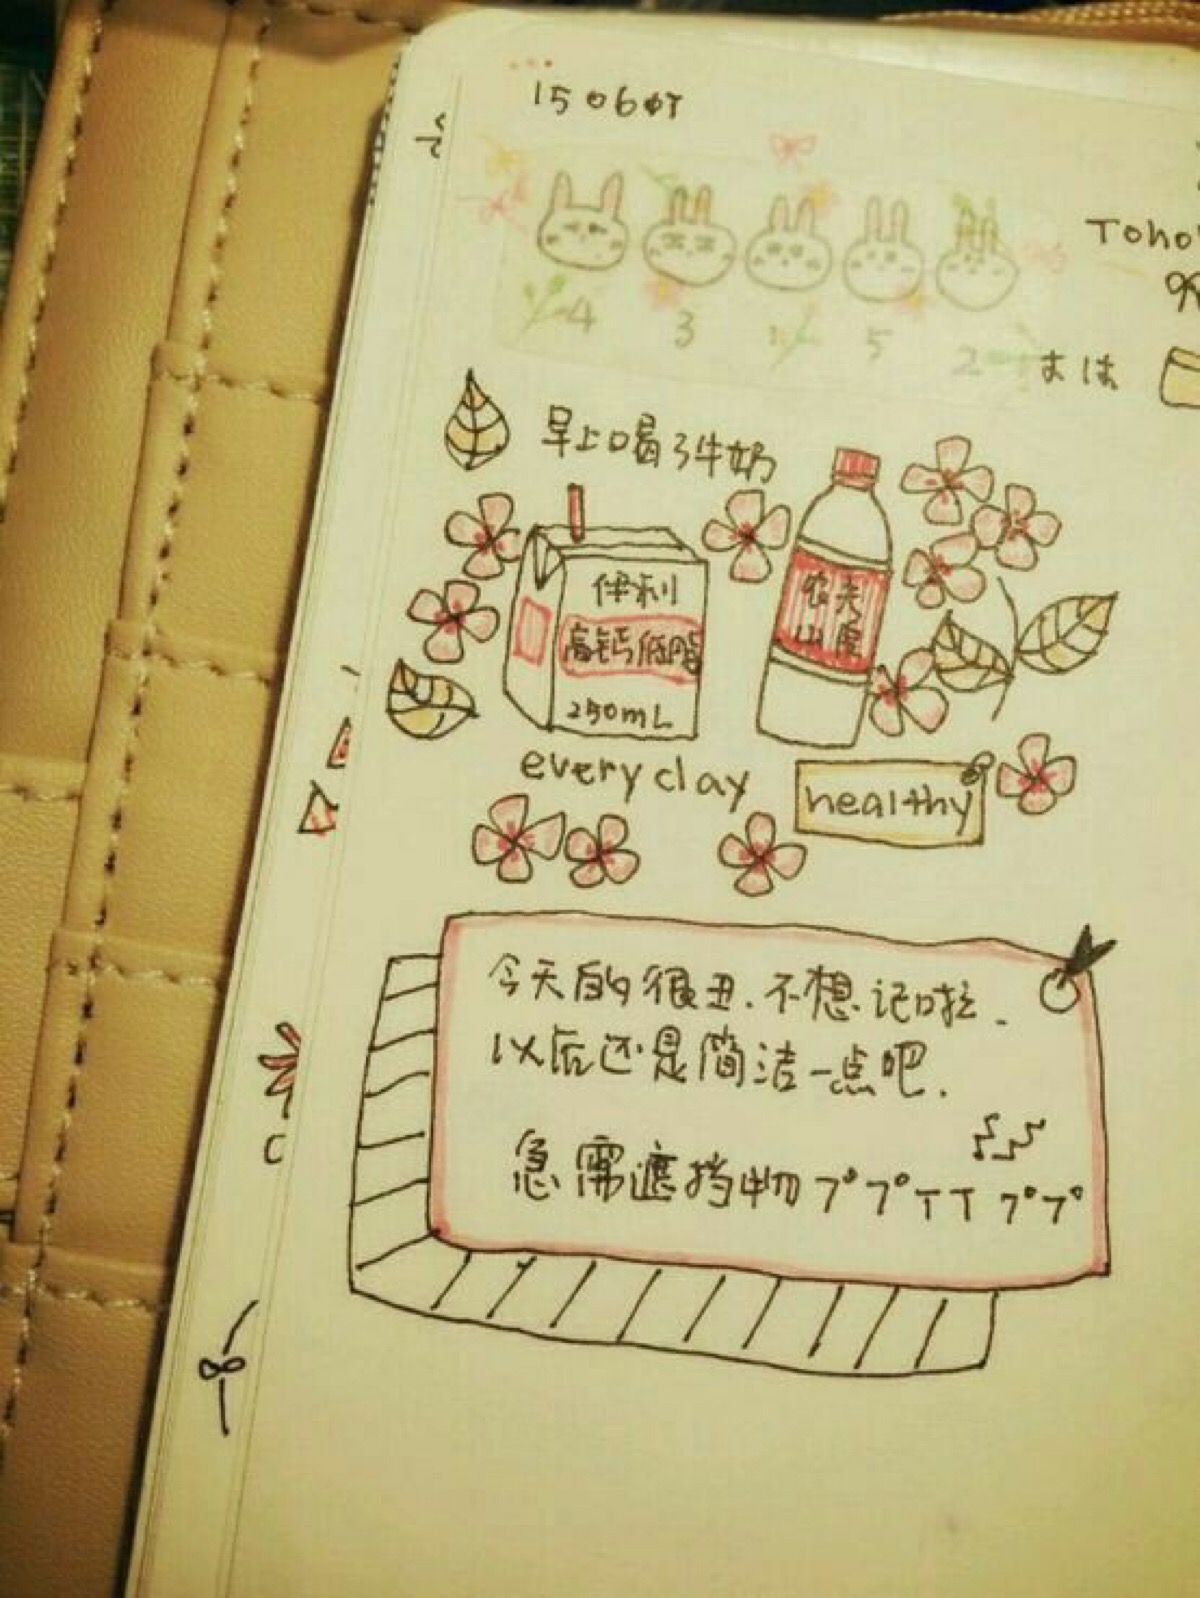 Toho
4 3 1 5 2
早上喝了牛奶
伊利
高钙低脂
250mL
农夫
山泉
every day
healthy
今天的很丑.不想记啦.
以后还是简洁一点吧.
急需遮挡物 プ プ T T プ プ